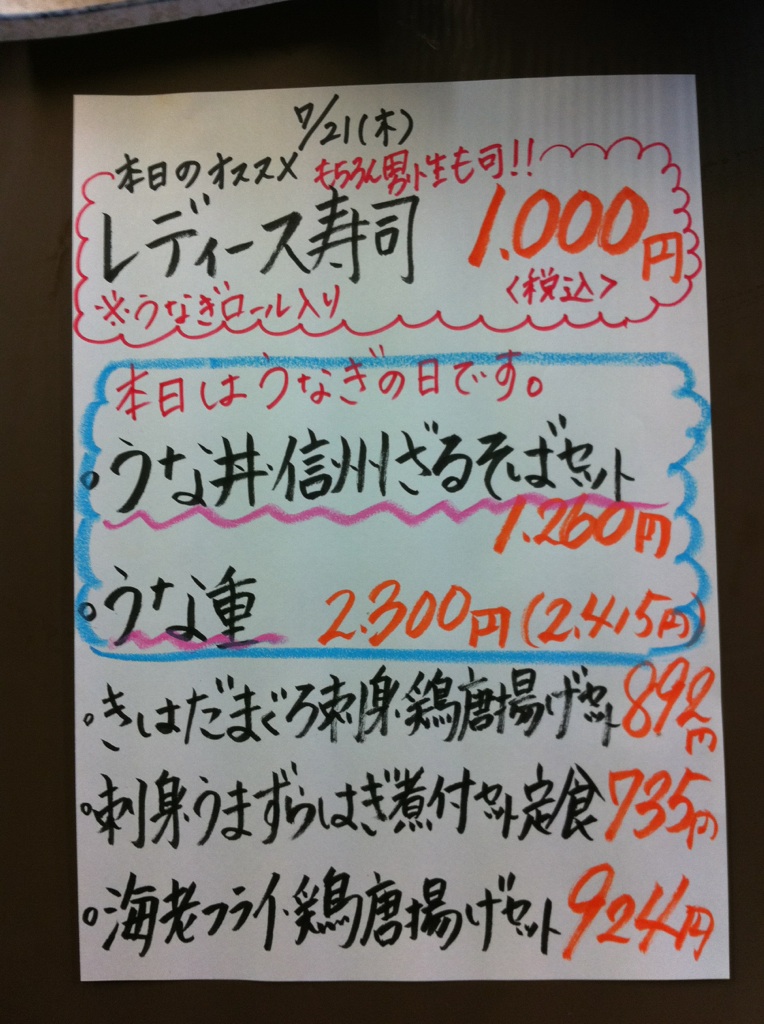 7/21(木)
本日のオススメ もちろん男性も可!!
レディース寿司 1.000円
※うなぎロール入り <税込>
本日はうなぎの日です。
。うな丼・信州ざるそばセット
1.260円
。うな重 2.300円(2.415円)
。きはだまぐろ刺身・鶏唐揚げセット 892円
。刺身・うまずらはぎ煮付セット定食 735円
。海老フライ・鶏唐揚げセット 924円